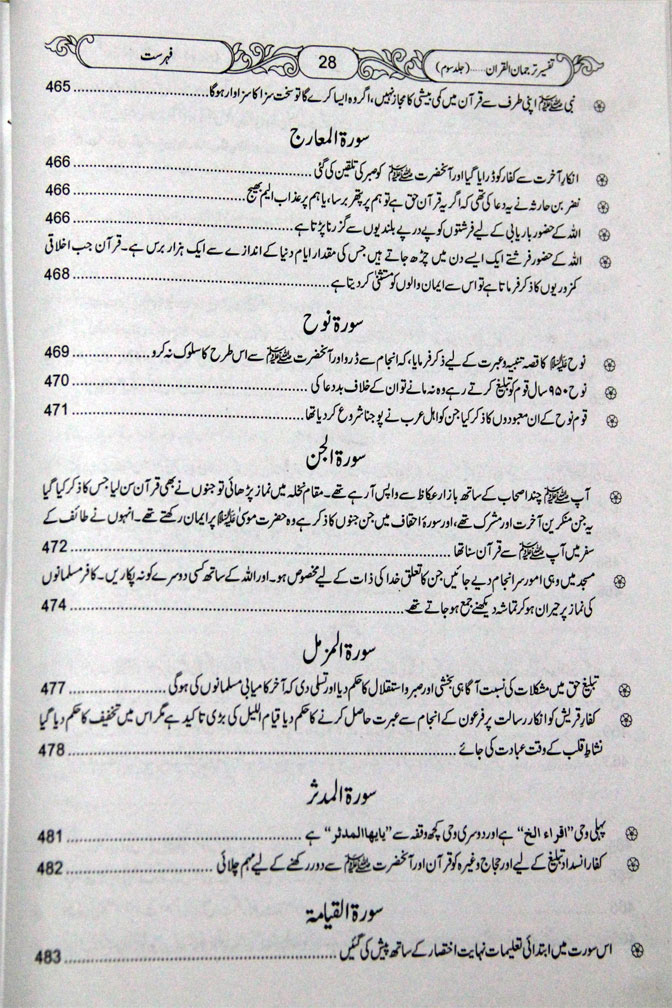 تفسیر ترجمان القرآن.....(جلد سوم)
28
فہرست
نبی ﷺ اپنی طرف سے قرآن میں کمی بیشی کا مجاز نہیں، اگر وہ ایسا کرے گا تو سخت سزا کا سزاوار ہوگا 465
سورۃ المعارج
انکارِ آخرت سے کفار کو ڈرایا گیا اور آنحضرت ﷺ کو صبر کی تلقین کی گئی 466
نضر بن حارثہ نے یہ دعا کی تھی کہ اگر یہ قرآن حق ہے تو ہم پر پتھر برسا، یا ہم پر عذاب الیم بھیج 466
اللہ کے حضور باریابی کے لیے فرشتوں کو پے در پے بلندیوں سے گزرنا پڑتا ہے 466
اللہ کے حضور فرشتے ایک ایسے دن میں چڑھ جاتے ہیں جس کی مقدار ایام دنیا کے اندازے سے ایک ہزار برس ہے۔ قرآن جب اخلاقی
کمزوریوں کا ذکر فرماتا ہے تو اس سے ایمان والوں کو مستثنیٰ کر دیتا ہے 468
سورۃ نوح
نوح علیہ السلام کا قصہ تنبیہ و عبرت کے لیے ذکر فرمایا، کہ انجام سے ڈرو اور آنحضرت ﷺ سے اس طرح کا سلوک نہ کرو 469
نوح ۹۵۰ سال قوم کو تبلیغ کرتے رہے وہ نہ مانے تو ان کے خلاف بددعا کی 470
قوم نوح کے ان معبودوں کا ذکر کیا جن کو اہل عرب نے پوجنا شروع کر دیا تھا 471
سورۃ الجن
آپ ﷺ چند اصحاب کے ساتھ بازار عکاظ سے واپس آ رہے تھے۔ مقام نخلہ میں نماز پڑھائی تو جنوں نے بھی قرآن سن لیا جس کا ذکر کیا گیا
یہ جن منکرین آخرت اور مشرک تھے، اور سورۂ احقاف میں جن جنوں کا ذکر ہے وہ حضرت موسیٰ علیہ السلام پر ایمان رکھتے تھے۔ انہوں نے طائف کے
سفر میں آپ ﷺ سے قرآن سنا تھا 472
مسجد میں وہی امور سرانجام دیے جائیں جن کا تعلق خدا کی ذات کے لیے مخصوص ہو۔ اور اللہ کے ساتھ کسی دوسرے کو نہ پکاریں۔ کافر مسلمانوں
کی نماز پر حیران ہو کر تماشہ دیکھنے جمع ہو جاتے تھے 474
سورۃ المزمل
تبلیغ حق میں مشکلات کی نسبت آگاہی بخشی اور صبر و استقلال کا حکم دیا اور تسلی دی کہ آخر کامیابی مسلمانوں کی ہوگی 477
کفارِ قریش کو انکار رسالت پر فرعون کے انجام سے عبرت حاصل کرنے کا حکم دیا قیام اللیل کی بڑی تاکید ہے مگر اس میں تخفیف کا حکم دیا گیا
نشاطِ قلب کے وقت عبادت کی جائے 478
سورۃ المدثر
پہلی وحی "اقراء الخ" ہے اور دوسری وحی کچھ وقفہ سے "یایھا المدثر" ہے 481
کفار انسداد تبلیغ کے لیے اور حجاج وغیرہ کو قرآن اور آنحضرت ﷺ سے دور رکھنے کے لیے مہم چلائی 482
سورۃ القیامۃ
اس سورت میں ابتدائی تعلیمات نہایت اختصار کے ساتھ پیش کی گئیں 483